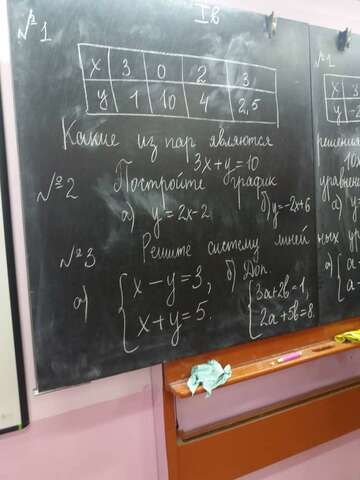 Iв
№1
x 3 0 2 3
y 1 10 4 2,5
Какие из пар являются
3x+y=10
№2 Постройте график
а) y=2x-2 б) y=-2x+6
№3 Решите систему линей
а) { x-y=3, б) Доп. { 3a+2b=1,
x+y=5. 2a+5b=8.
№1
x 3
y -2
решения
10x
уравнени
а) y=
ных ур
а) { a-
a+